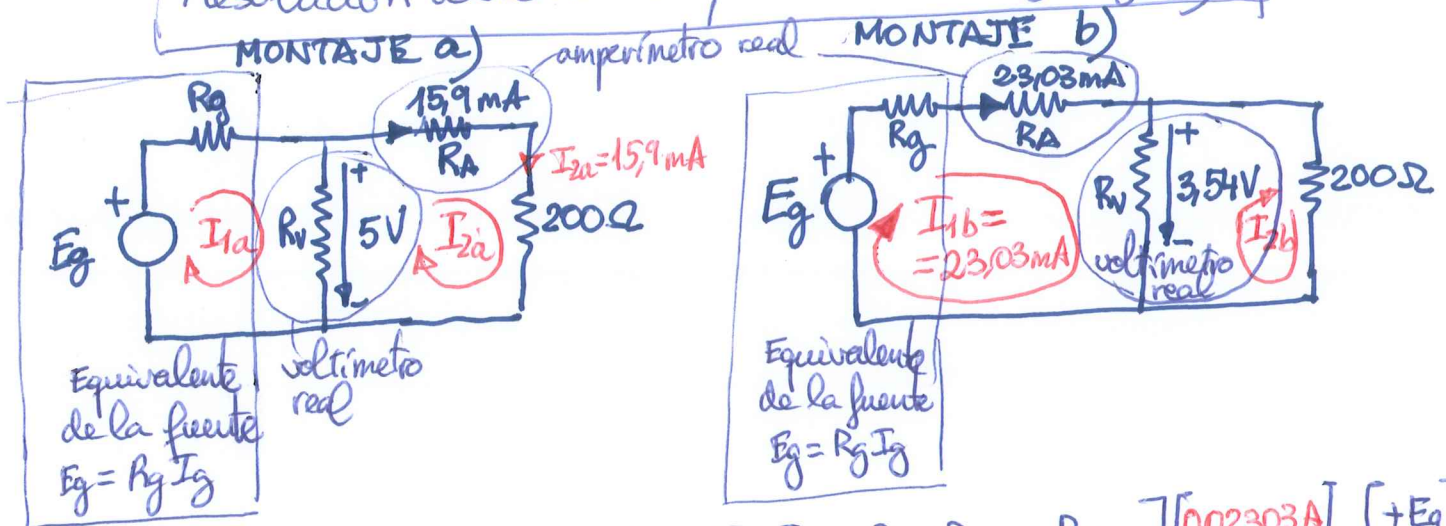 MONTAJE a)
amperímetro real
MONTAJE b)
Rg
15,9 mA
RA
I2a=15,9 mA
+
Eg
I1a
Rv
+
5V
-
I2a
200Ω
voltímetro
real
Equivalente
de la fuente
Eg = Rg Ig
23,03mA
RA
Rg
+
Eg
I1b =
= 23,03mA
Rv
+
3,54V
-
voltímetro
real
I2b
200Ω
Equivalente
de la fuente
Eg = Rg Ig
0,02303A
+Eg